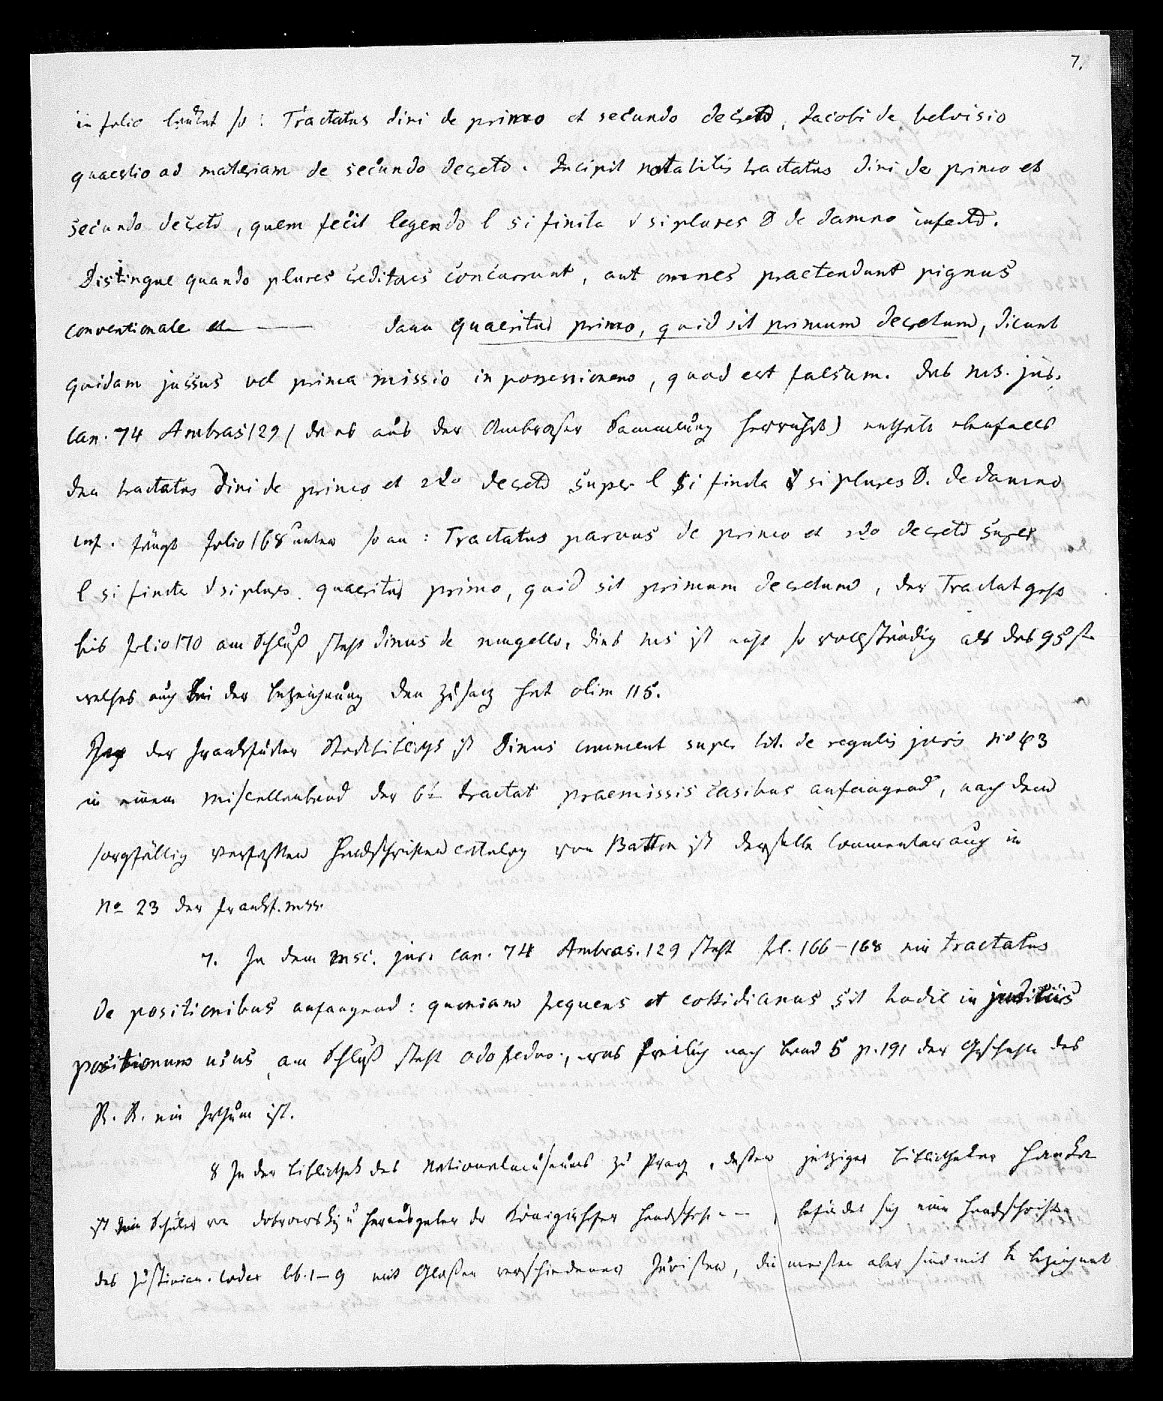 7.
in folio lautet so: Tractatus dini de primo et secundo decreto, Jacobi de belvisio
quaestio ad materiam de secundo decreto. Incipit notabilis tractatus dini de primo et
secundo decreto, quem fecit legendo l si finita § si plures D de damno infecto.
Distingue quando plures creditores concurrunt, aut omnes praetendunt pignus
conventionale etc —— dann quaeritur primo, quid sit primum decretum, dicunt
quidam jussus vel prima missio in possessionem, quod est falsum. das ms. jur.
can. 74 Ambras 129 (da es aus der Ambraser Sammlung herrührt) enthält ebenfalls
den tractatus Dini de primo et 2do decreto super l si finita § si plures D. de damno
inf. fängt folio 168 unten so an: Tractatus parvus de primo et 2do decreto super
l si finita § si plures. quaeritur primo, quid sit primum decretum, der Tractat geht
bis folio 170 am Schluß steht dinus de mugello, dies ms ist nicht so vollständig als das 95ste
welches auch bei der bezeichnung den Zusatz hat olim 115.
der Frankfurter Stadtbiblioth ist Dinus comment super tit. de regulis juris no 43
in einem Miscellenband der 6te tractat praemissis casibus anfangend, nach dem
sorgfältig verfaßten Handschriften catalog von Batton ist derselbe Commentar auch in
No 23 der frankf. mss.
7. In dem msc. jur. can. 74 Ambras. 129 steht fol. 166–168 ein tractatus
de positionibus anfangend: quoniam frequens et cottidianus sit hodie in judiciis
positionum usus, am Schluß steht odofredus, was freilich nach Band 5 p. 191 der Geschichte des
R. R. ein Irthum ist.
8 In der bibliothek des Nationalmuseums zu Prag, dessen jetziger bibliothekar Hanka
ist ein Schüler von dobrowsky u herausgeber der Königinhofer Handschft. –– , befindet sich eine Handschrift
des Justinian. Codex lib. 1–9 mit Glossen verschiedener Juristen, die meisten aber sind mit bezeichnet